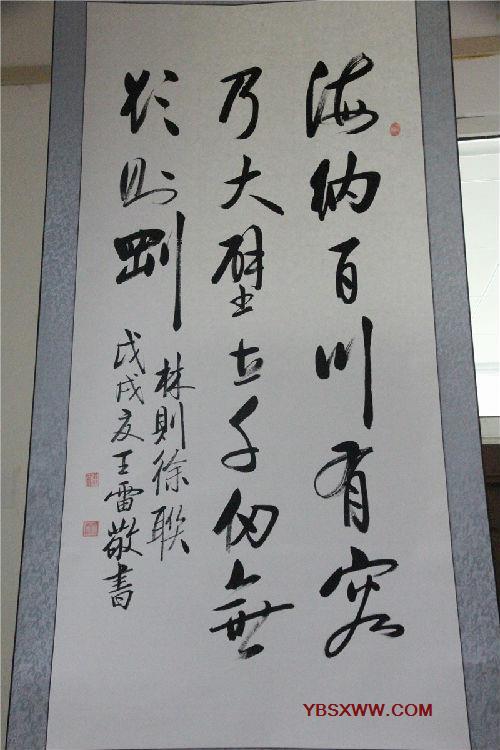 海纳百川有容
乃大壁立千仞無
欲则剛
林則徐聯
戊戌夏王雷敬書
YBSXWW.COM